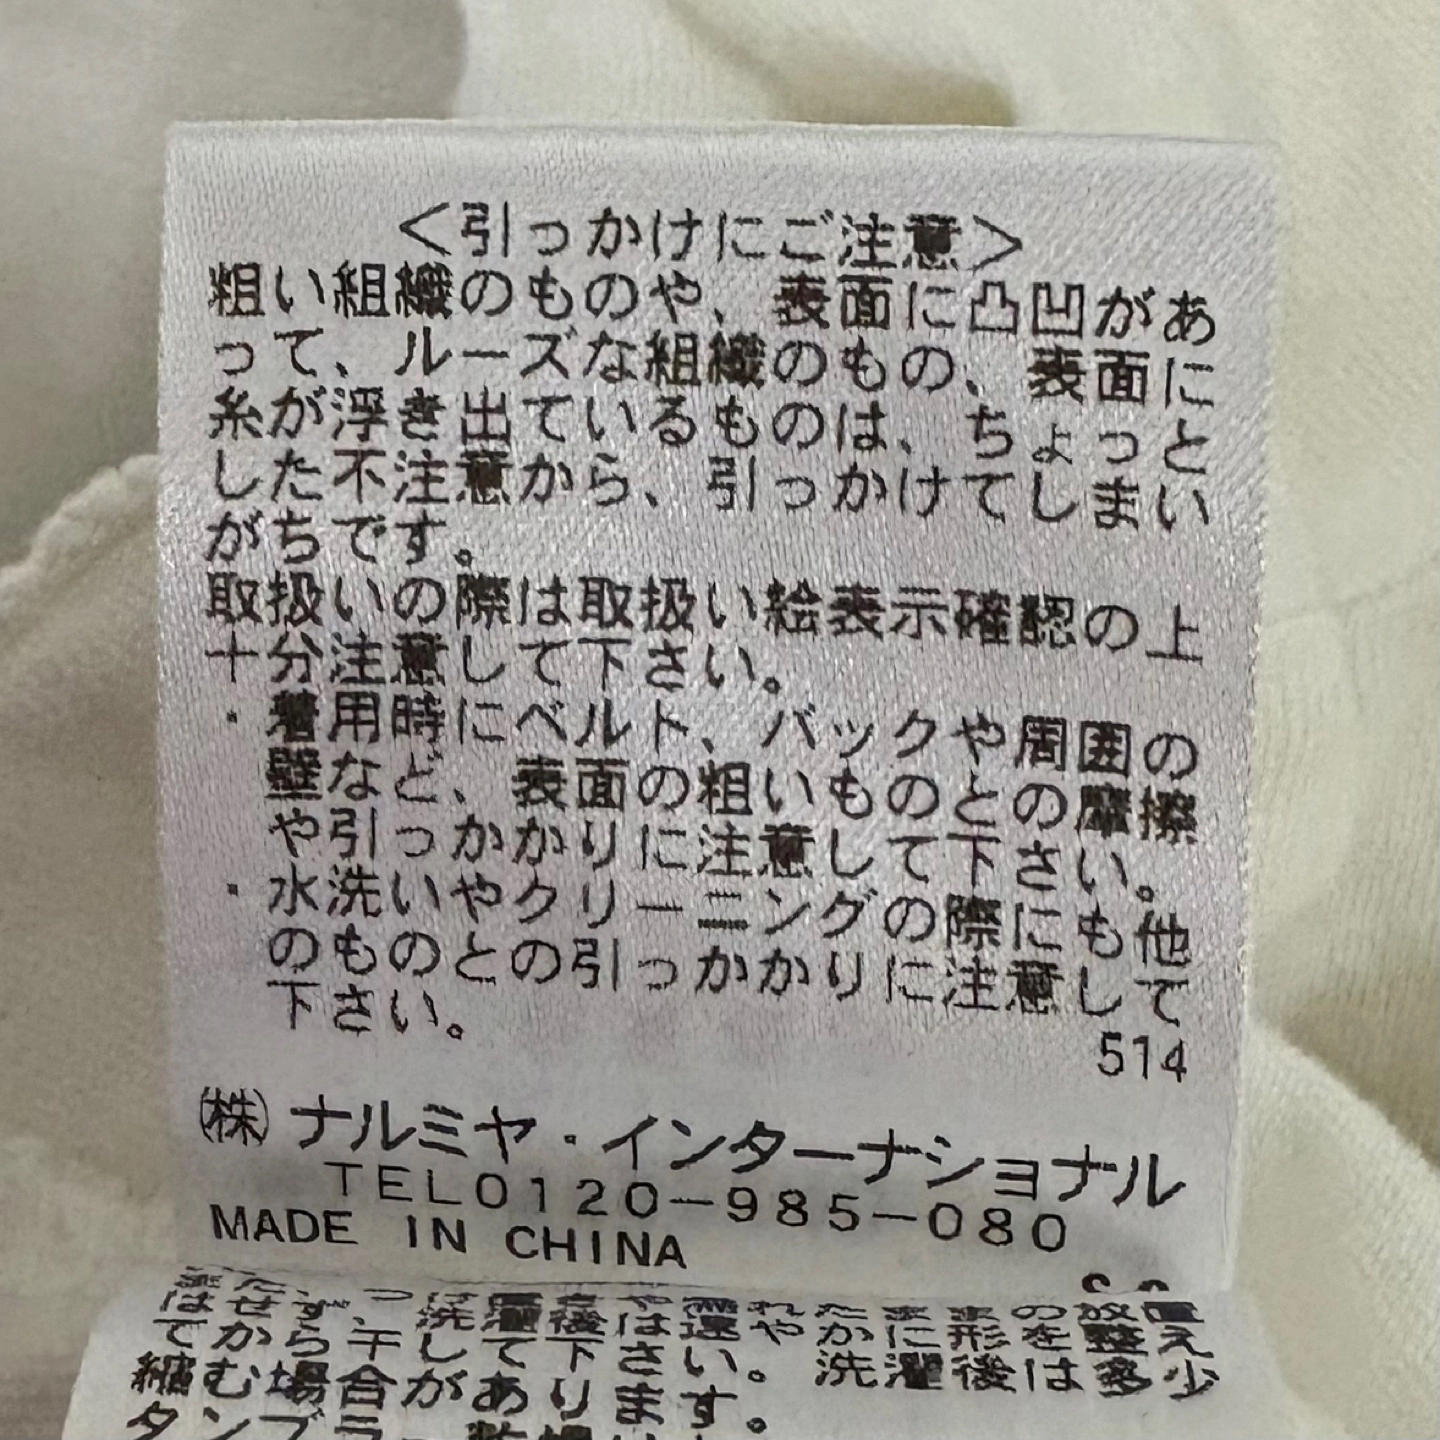 ＜引っかけにご注意＞
粗い組織のものや、表面に凸凹があ
って、ルーズな組織のもの、表面に
糸が浮き出ているものは、ちょっと
した不注意から、引っかけてしまい
がちです。
取扱いの際は取扱い絵表示確認の上
十分注意して下さい。
・着用時にベルト、バックや周囲の
壁など、表面の粗いものとの摩擦
や引っかかりに注意して下さい。
・水洗いやクリーニングの際にも他
のものとの引っかかりに注意して
下さい。
514
㈱ナルミヤ・インターナショナル
TEL0120-985-080
MADE IN CHINA
はせず、洗濯後は速やかに形を整え
てから干して下さい。洗濯後は多少
縮む場合があります。